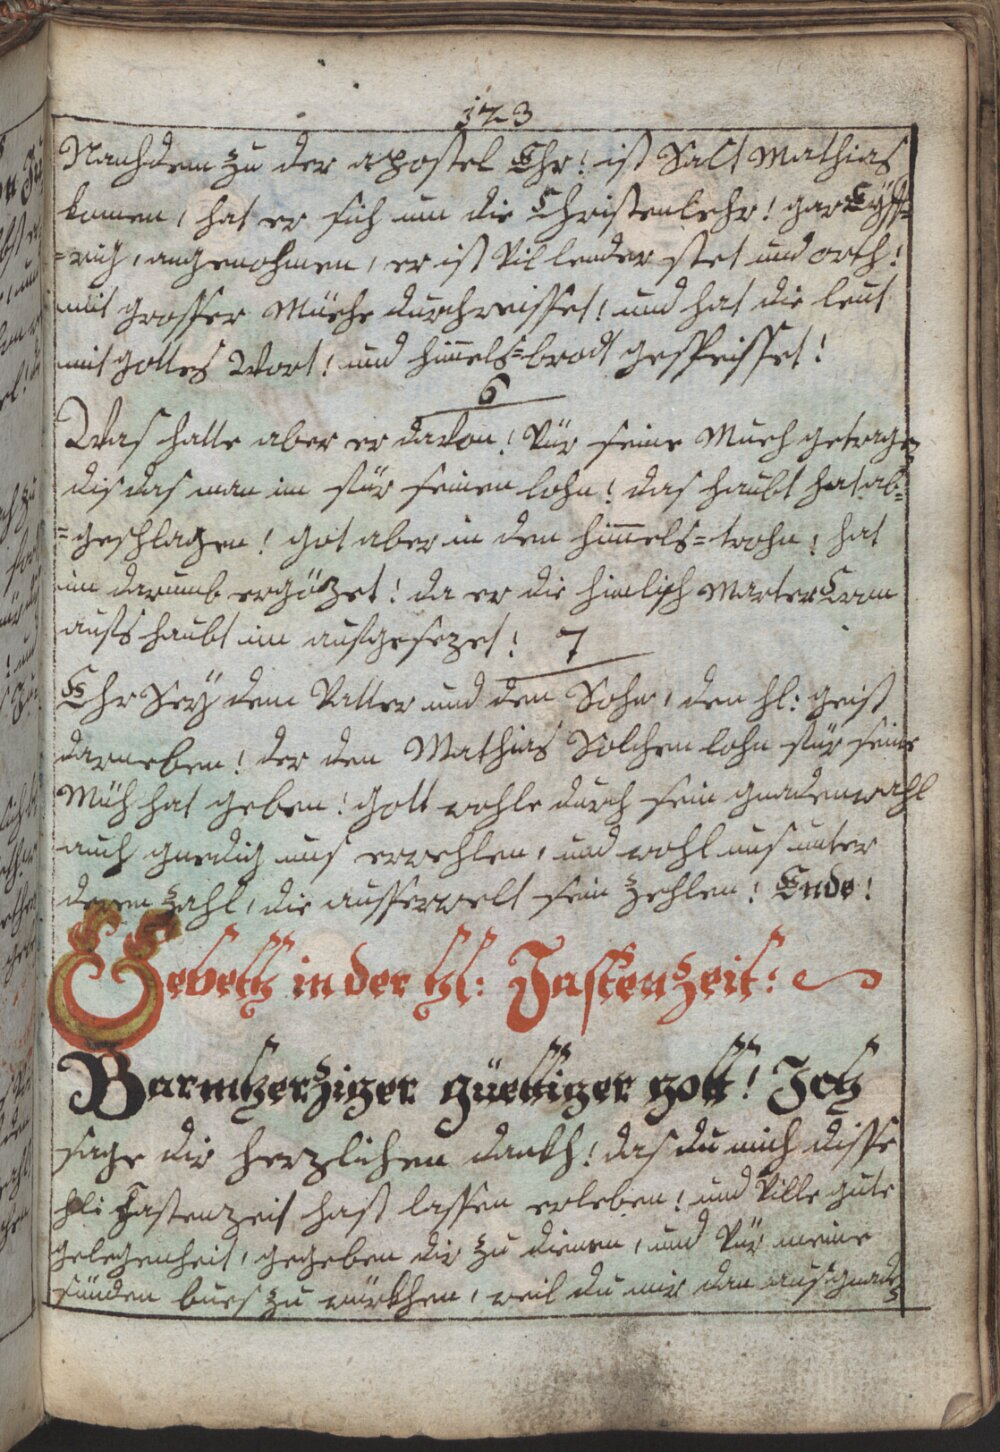 123
Nachdem zu der apostel Ehr! ist Salt Mathias
komen, hat er sich um die Christenlehr! gar Eÿff=
=rig, angenohmen, er ist Vil lender stet und orth!
mit grosser Müehe durchreisset! und hat die leut
mit gottes Wort! und himels=brodt gespeisset!
6
Was hatte aber er davon! Vür seine Mueh getragen
dis das man im für seinen lohn! das haubt hat ab=
=geschlagen! got aber in den himels=trohn, hat
im darumb ergözet! da er die himlisch Marter Cron
aufs haubt im aufgesezet! 7
Ehr Seÿ dem Vatter und den Sohn, den hl: geist
darneben! der den Mathias Solchen lohn für seine
Müh hat geben! gott wohle durch sein gnadenwahl
auch gnedig uns erwehlen, und wohl uns unter
deren zahl, die ausserwelt sein zehlen! Ende!
Gebett in der hl: Fastenzeit:
Barmherziger güettiger gott! Ich
sage dir herzlichen dankh! das du mich disse
hli Fastenzeit hast lassen erleben! und Ville gute
gelegenheit, gegeben dir zu dienen, und Vür meine
sünden bues zu würkhen, weil du mir dan aus gnaden